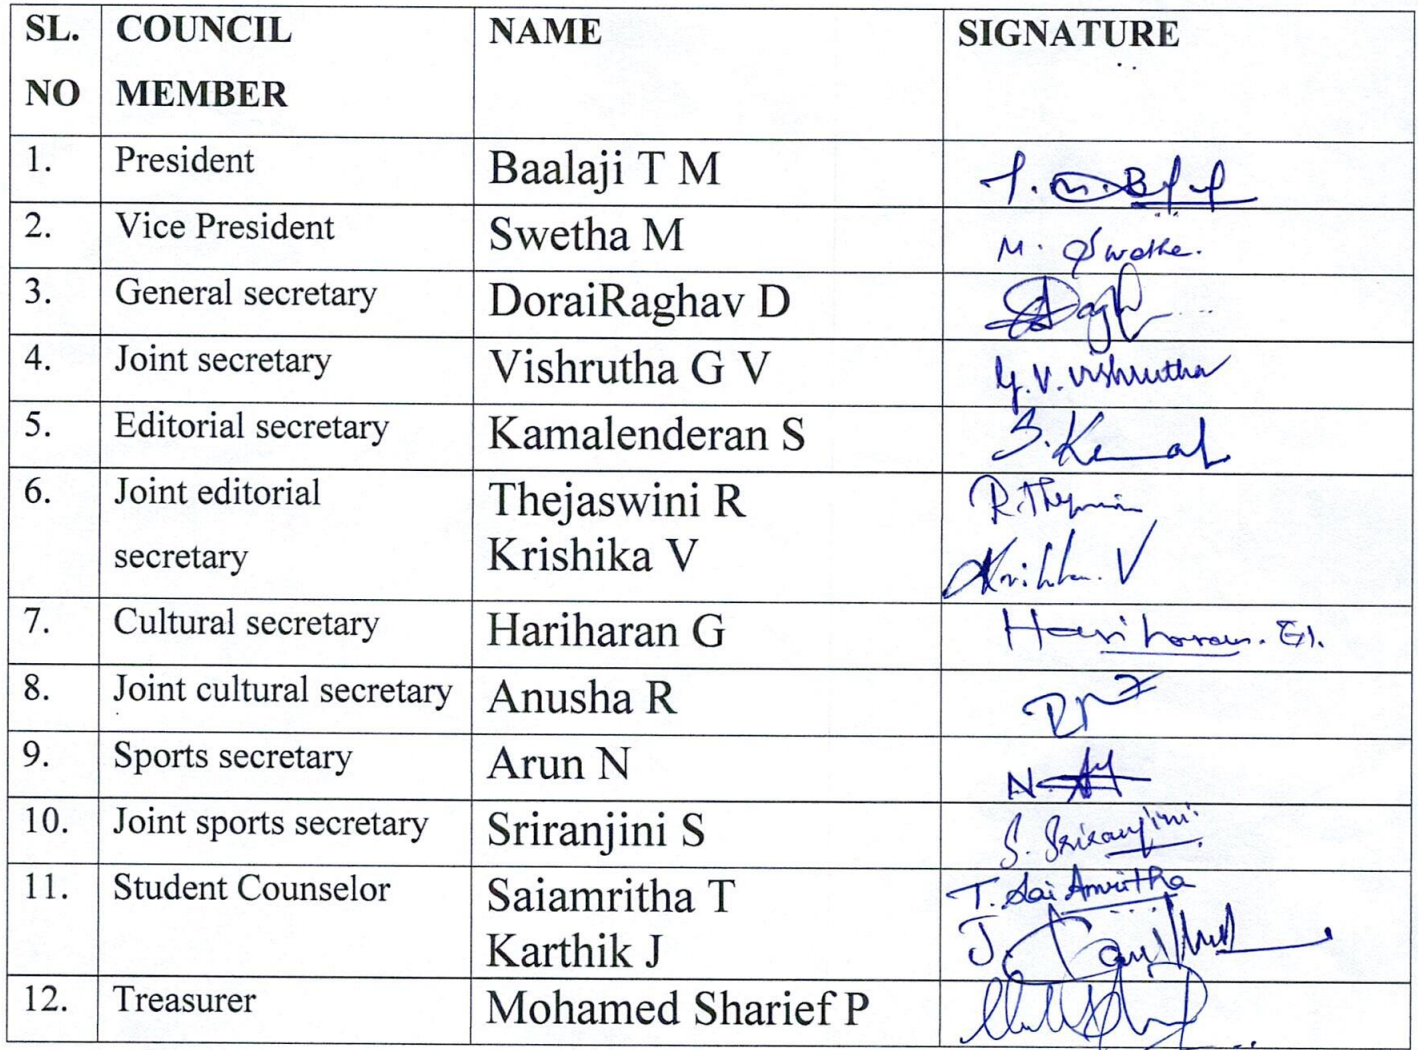 SL. COUNCIL NAME SIGNATURE
NO MEMBER
1. President Baalaji T M T. M. B
2. Vice President Swetha M M. Swetha.
3. General secretary DoraiRaghav D
4. Joint secretary Vishrutha G V G.V. Vishrutha
5. Editorial secretary Kamalenderan S S. Kamal
6. Joint editorial Thejaswini R R. Thejaswini
secretary Krishika V Krishika. V
7. Cultural secretary Hariharan G Hariharan. G.
8. Joint cultural secretary Anusha R
9. Sports secretary Arun N N.
10. Joint sports secretary Sriranjini S S. Sriranjini
11. Student Counselor Saiamritha T T. Sai Amritha
Karthik J J. Karthik
12. Treasurer Mohamed Sharief P